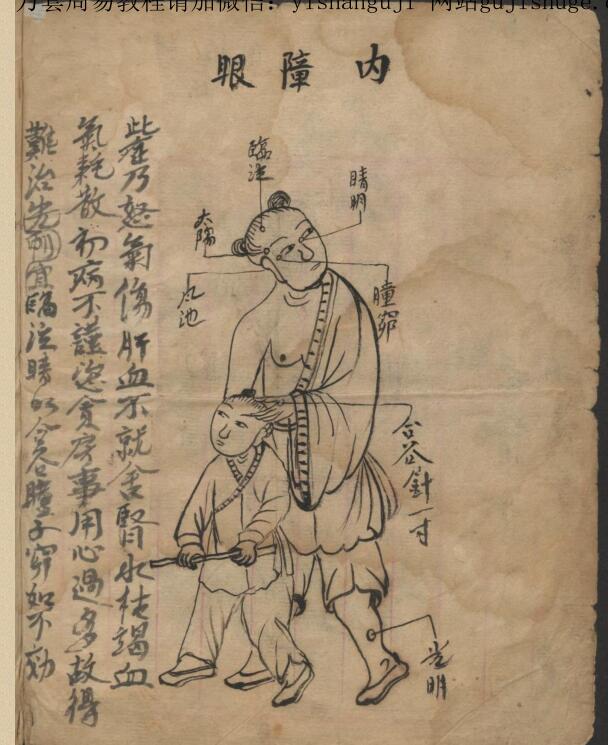 万套周易教程请加微信：yishanguji 网站gujishuge.c
內障眼
臨泣
睛明
太陽
風池
瞳窌
合谷針一寸
光明
此症乃怒氣傷肝血不就舍腎水枯竭血
氣耗散初病不謹恣貪房事用心過多故得
難治先刺宜臨泣睛明合谷瞳子窌如不効